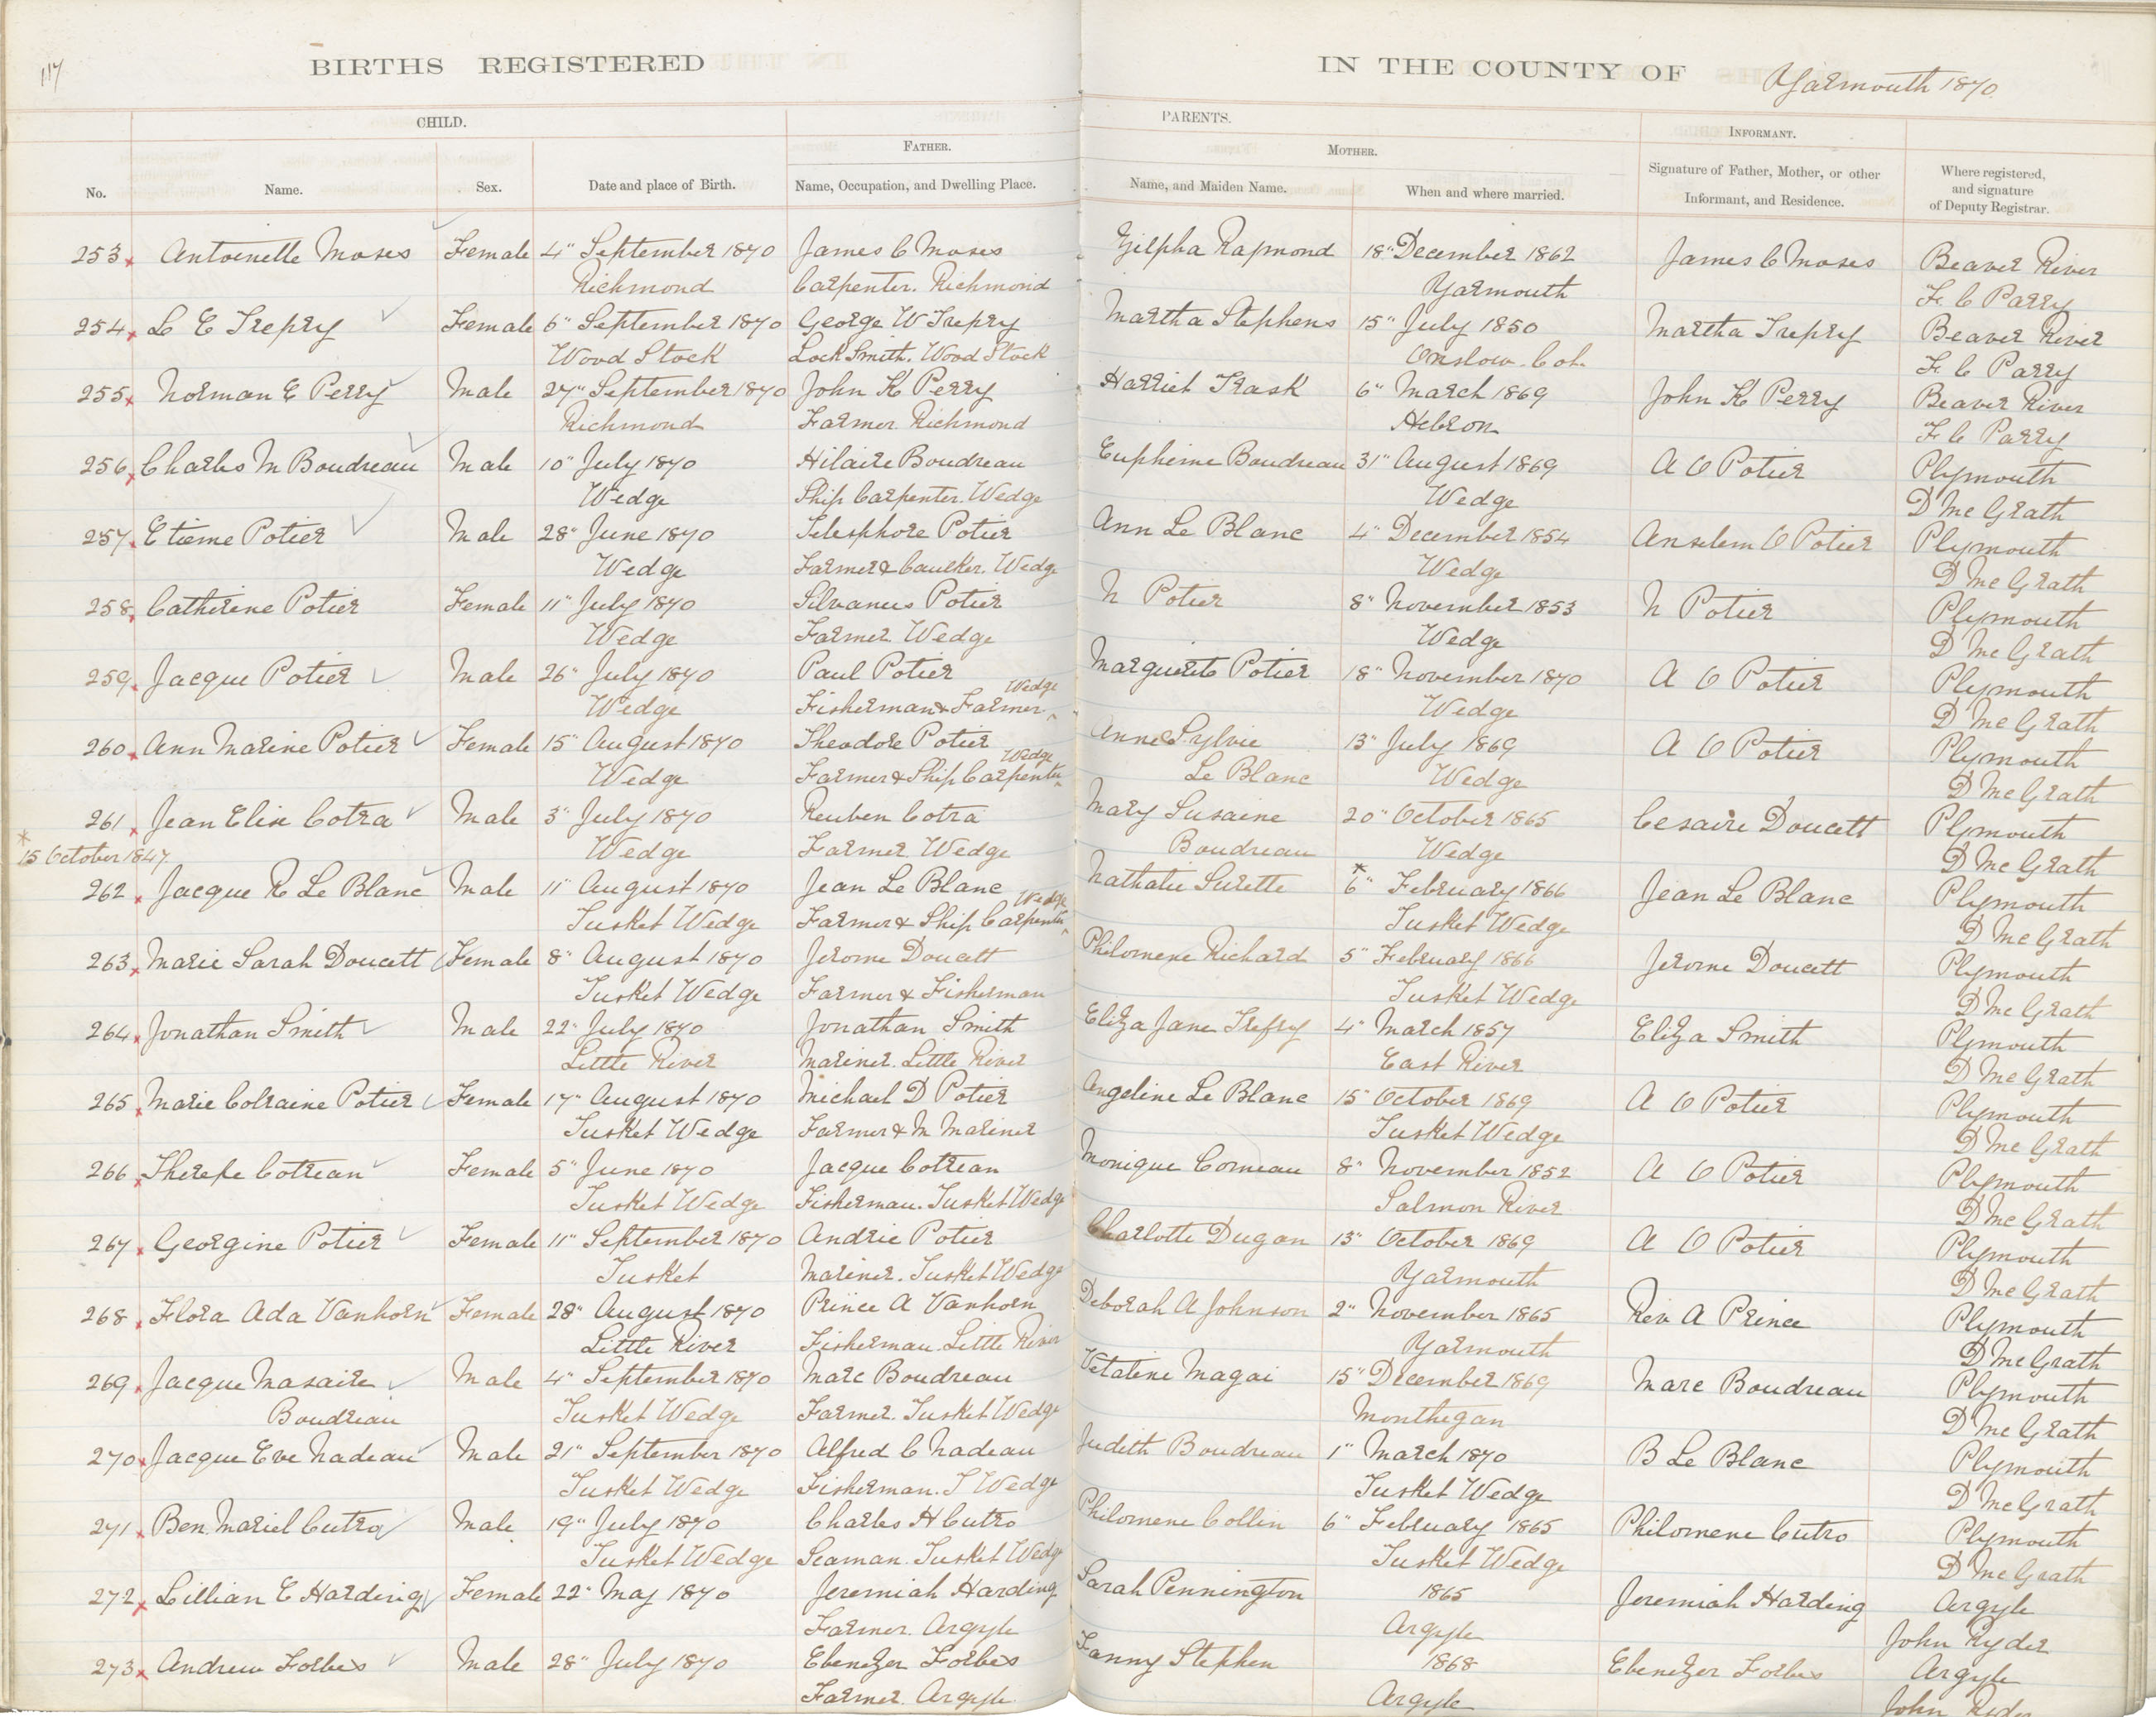 117
BIRTHS REGISTERED IN THE COUNTY OF Yarmouth 1870.
CHILD. PARENTS.
FATHER. MOTHER. INFORMANT.
No. Name. Sex. Date and place of Birth. Name, Occupation, and Dwelling Place. Name, and Maiden Name. When and where married. Signature of Father, Mother, or other Informant, and Residence. Where registered, and signature of Deputy Registrar.
253 Antoinelle Moses Female 4" September 1870 James C Moses Zilpha Raymond 18" December 1862 James C Moses Beaver River
Richmond Carpenter. Richmond Yarmouth F. C Parry
254 L E Trepry Female 6" September 1870 George W Trepry Martha Stephens 15" July 1850 Martha Trepry Beaver River
Wood Stock Lock Smith. Wood Stock Onslow. Coh. F. C Parry
255 Norman E Perry Male 27" September 1870 John K Perry Harriet Trask 6" March 1869 John K Perry Beaver River
Richmond Farmer. Richmond Hebron F C Parry
256 Charles M Boudreau Male 10" July 1870 Hilaire Boudreau Eupheime Boudreau 31" August 1869 A O Potier Plymouth
Wedge Ship Carpenter. Wedge Wedge D McGrath
257 Etieme Potier Male 28" June 1870 Telesphore Potier Ann Le Blanc 4" December 1854 Anselem O Potier Plymouth
Wedge Farmer & Caulker. Wedge Wedge D McGrath
258 Catherine Potier Female 11" July 1870 Silvanus Potier N Potier 8" November 1853 N Potier Plymouth
Wedge Farmer. Wedge Wedge D McGrath
259 Jacque Potier Male 26" July 1870 Paul Potier Marguirite Potier 18" November 1870 A O Potier Plymouth
Wedge Fisherman & Farmer. Wedge Wedge D McGrath
260 Ann Marine Potier Female 15" August 1870 Theodore Potier Anne Sylvie 13" July 1869 A O Potier Plymouth
Wedge Farmer & Ship Carpenter Wedge Le Blanc Wedge D McGrath
261 Jean Elise Cotra Male 3" July 1870 Reuben Cotra Mary Susaine 20" October 1865 Cesaire Doucett Plymouth
Wedge Farmer. Wedge Boudreau Wedge D McGrath
* 15 October 1847
262 Jacque R Le Blanc Male 11" August 1870 Jean Le Blanc Nathalie Surette *6" February 1866 Jean Le Blanc Plymouth
Tusket Wedge Farmer & Ship Carpenter Wedge Tusket Wedge D McGrath
263 Marie Sarah Doucett Female 8" August 1870 Jerome Doucett Philomene Richard 5" February 1866 Jerome Doucett Plymouth
Tusket Wedge Farmer & Fisherman Tusket Wedge D McGrath
264 Jonathan Smith Male 22" July 1870 Jonathan Smith Eliza Jane Trefry 4" March 1857 Eliza Smith Plymouth
Little River Mariner. Little River East River D McGrath
265 Marie Colraine Potier Female 17" August 1870 Michael D Potier Angeline Le Blanc 15" October 1869 A O Potier Plymouth
Tusket Wedge Farmer & M Mariner Tusket Wedge D McGrath
266 Therese Cotrean Female 5" June 1870 Jacque Cotrean Monique Comeau 8" November 1852 A O Potier Plymouth
Tusket Wedge Fisherman. Tusket Wedge Salmon River D McGrath
267 Georgine Potier Female 11" September 1870 Andrie Potier Charlotte Dugan 13" October 1869 A O Potier Plymouth
Tusket Mariner. Tusket Wedge Yarmouth D McGrath
268 Flora Ada Vanhorn Female 28" August 1870 Prince A Vanhorn Deborah A Johnson 2" November 1865 Rev A Prince Plymouth
Little River Fisherman. Little River Yarmouth D McGrath
269 Jacque Masaire Male 4" September 1870 Marc Boudreau Vetaline Magai 15" December 1869 Marc Boudreau Plymouth
Boudreau Tusket Wedge Farmer. Tusket Wedge Monthegan D McGrath
270 Jacque Eve Nadeau Male 21" September 1870 Alfred C Nadeau Judith Boudreau 1" March 1870 B Le Blanc Plymouth
Tusket Wedge Fisherman. T Wedge Tusket Wedge D McGrath
271 Ben. Mariel Cutro Male 19" July 1870 Charles H Cutro Philomene Collin 6" February 1865 Philomene Cutro Plymouth
Tusket Wedge Seaman. Tusket Wedge Tusket Wedge D McGrath
272 Lillian E Harding Female 22" May 1870 Jeremiah Harding Sarah Pennington 1865 Jeremiah Harding Argyle
Farmer. Argyle Argyle John Ryder
273 Andrew Forbes Male 28" July 1870 Ebenezer Forbes Fanny Stephen 1868 Ebenezer Forbes Argyle
Farmer. Argyle Argyle John Ryder